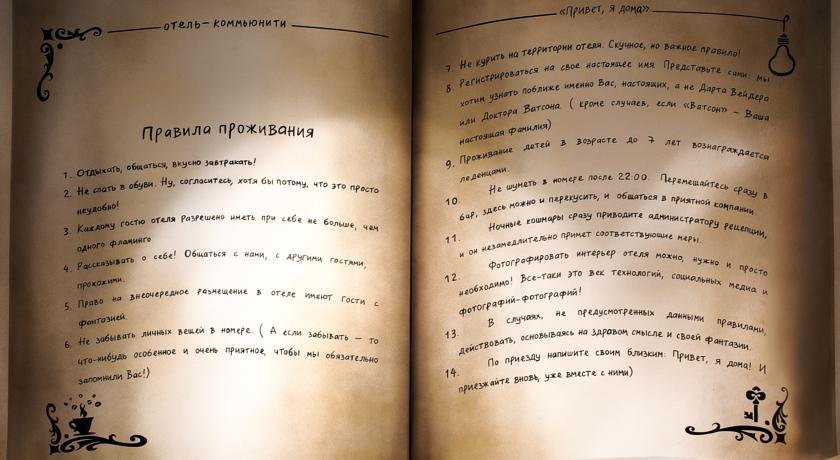 отель-коммьюнити
Правила проживания
1. Отдыхать, общаться, вкусно завтракать!
2. Не спать в обуви. Ну, согласитесь, хотя бы потому, что это просто
неудобно!
3. Каждому гостю отеля разрешено иметь при себе не больше, чем
одного фламинго
4. Рассказывать о себе! Общаться с нами, с другими гостями,
прохожими.
5. Право на внеочередное размещение в отеле имеют гости с
фантазией.
6. Не забывать личных вещей в номере. ( А если забывать – то
что-нибудь особенное и очень приятное, чтобы мы обязательно
запомнили Вас!)
«Привет, я дома»
7. Не курить на территории отеля. Скучное, но важное правило!
8. Регистрироваться на свое настоящее имя. Представьте сами: мы
хотим узнать поближе именно Вас, настоящих, а не Дарта Вейдера
или Доктора Ватсона. ( кроме случаев, если «Ватсон» – Ваша
настоящая фамилия)
9. Проживание детей в возрасте до 7 лет вознаграждается
леденцами.
10. Не шуметь в номере после 22:00. Перемещайтесь сразу в
бар, здесь можно и перекусить, и общаться в приятной компании.
11. Ночные кошмары сразу приводите администратору рецепции,
и он незамедлительно примет соответствующие меры.
12. Фотографировать интерьер отеля можно, нужно и просто
необходимо! Все-таки это век технологий, социальных медиа и
фотографий-фотографий!
13. В случаях, не предусмотренных данными правилами,
действовать, основываясь на здравом смысле и своей фантазии.
14. По приезду напишите своим близким: Привет, я дома! И
приезжайте вновь, уже вместе с ними)